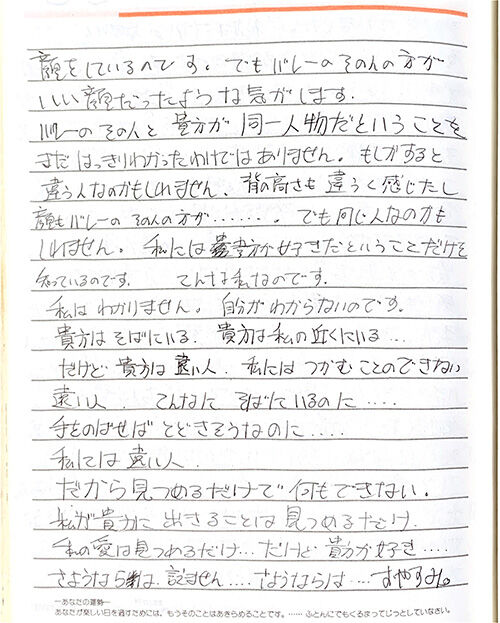 顔をしているのです。でもバレーのその人の方が
いい顔だったような気がします.
バレーのその人と貴方が同一人物だということを
まだはっきりわかったわけではありません。もしかすると
違う人なのかもしれません、背の高さも違うく感じたし
顔もバレーのその人の方が……。でも同じ人なのかも
しれません。私には貴方が好きだということだけを
知っているのです. こんな私なのです.
私はわかりません。自分がわからないのです.
貴方はそばにいる. 貴方は私の近くにいる…
だけど貴方は遠い人. 私にはつかむことのできない
遠い人. こんなにそばにいるのに….
手をのばせばとどきそうなのに….
私には遠い人.
だから見つめるだけで何もできない。
私が貴方に出きることは見つめるだけ.
私の愛は見つめるだけ…だけど貴方が好き….
さようならは 言ません….さようならは…すやすみ。
―あなたの運勢―
あなたが楽しい日を過すためには、もうそのことはあきらめることです。……ふとんにでもくるまってじっとしていなさい。